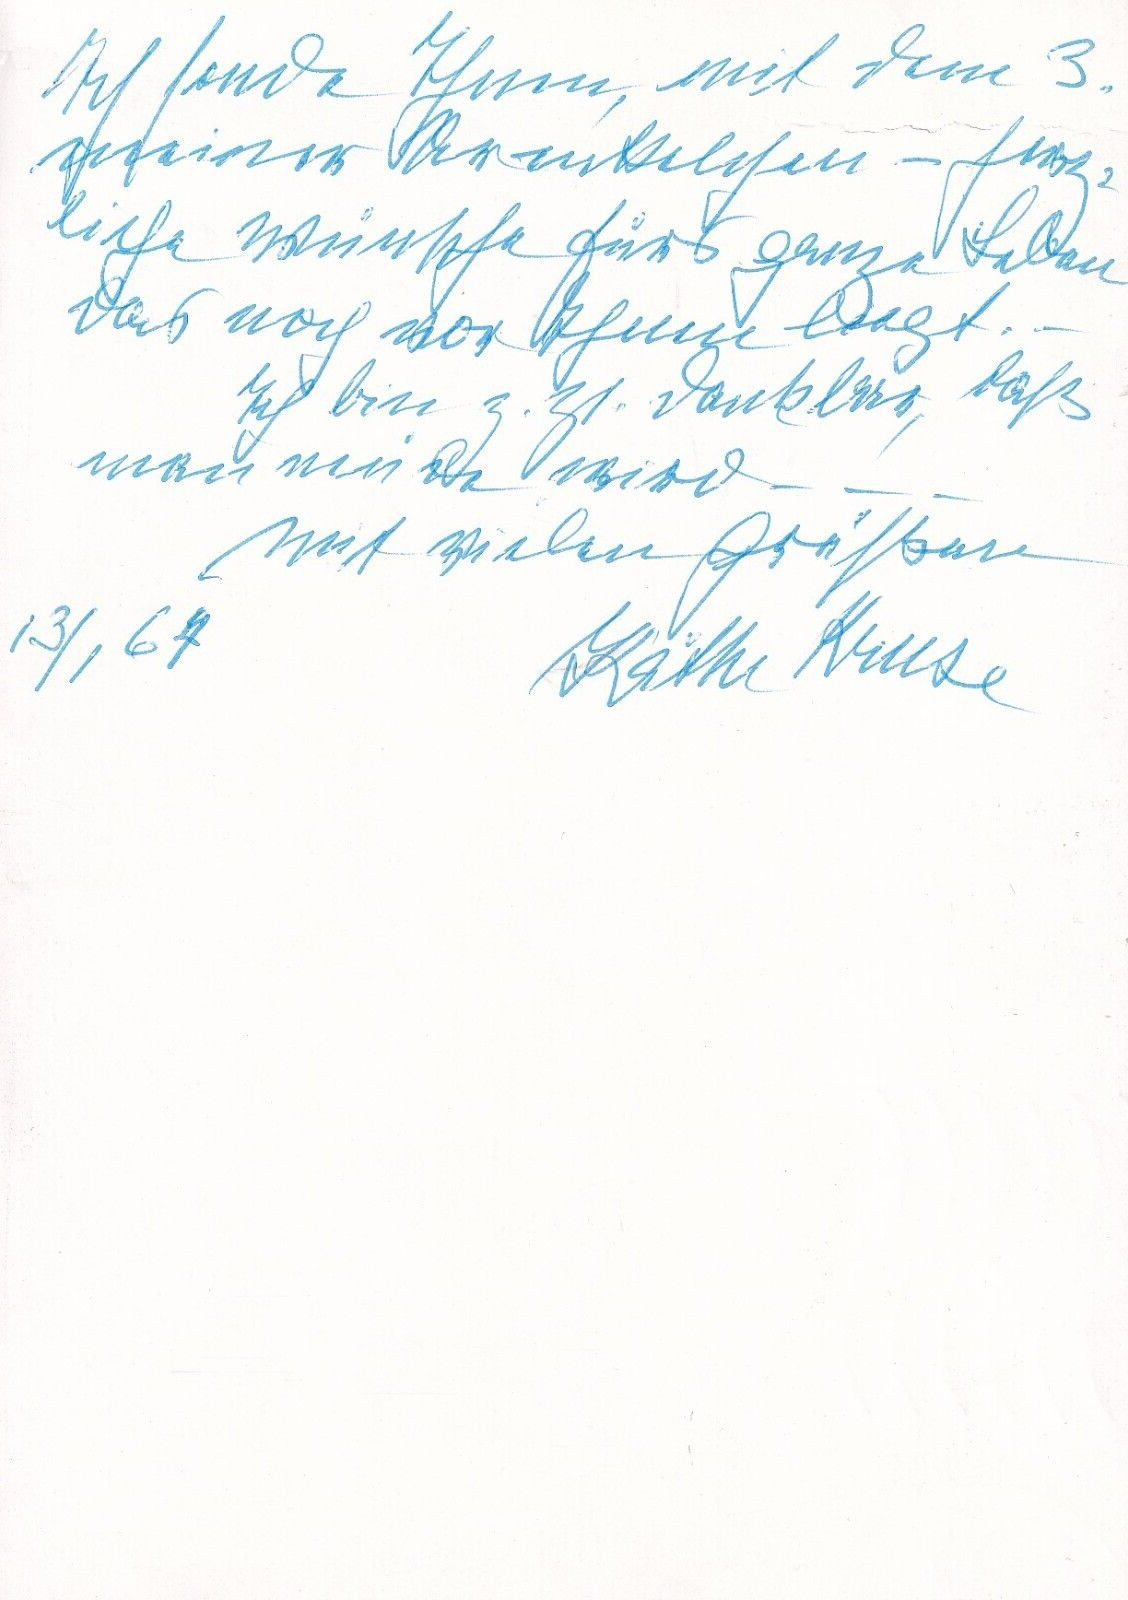 Ich sende Ihnen, mit dem 3.
meiner Urenkelchen – herz-
liche Wünsche fürs ganze Leben
das noch vor Ihnen liegt. –
Ich bin z. Zt. dankbar, daß
man müde wird – – –
Mit vielen Grüßen
13/1 67 Käthe Kruse